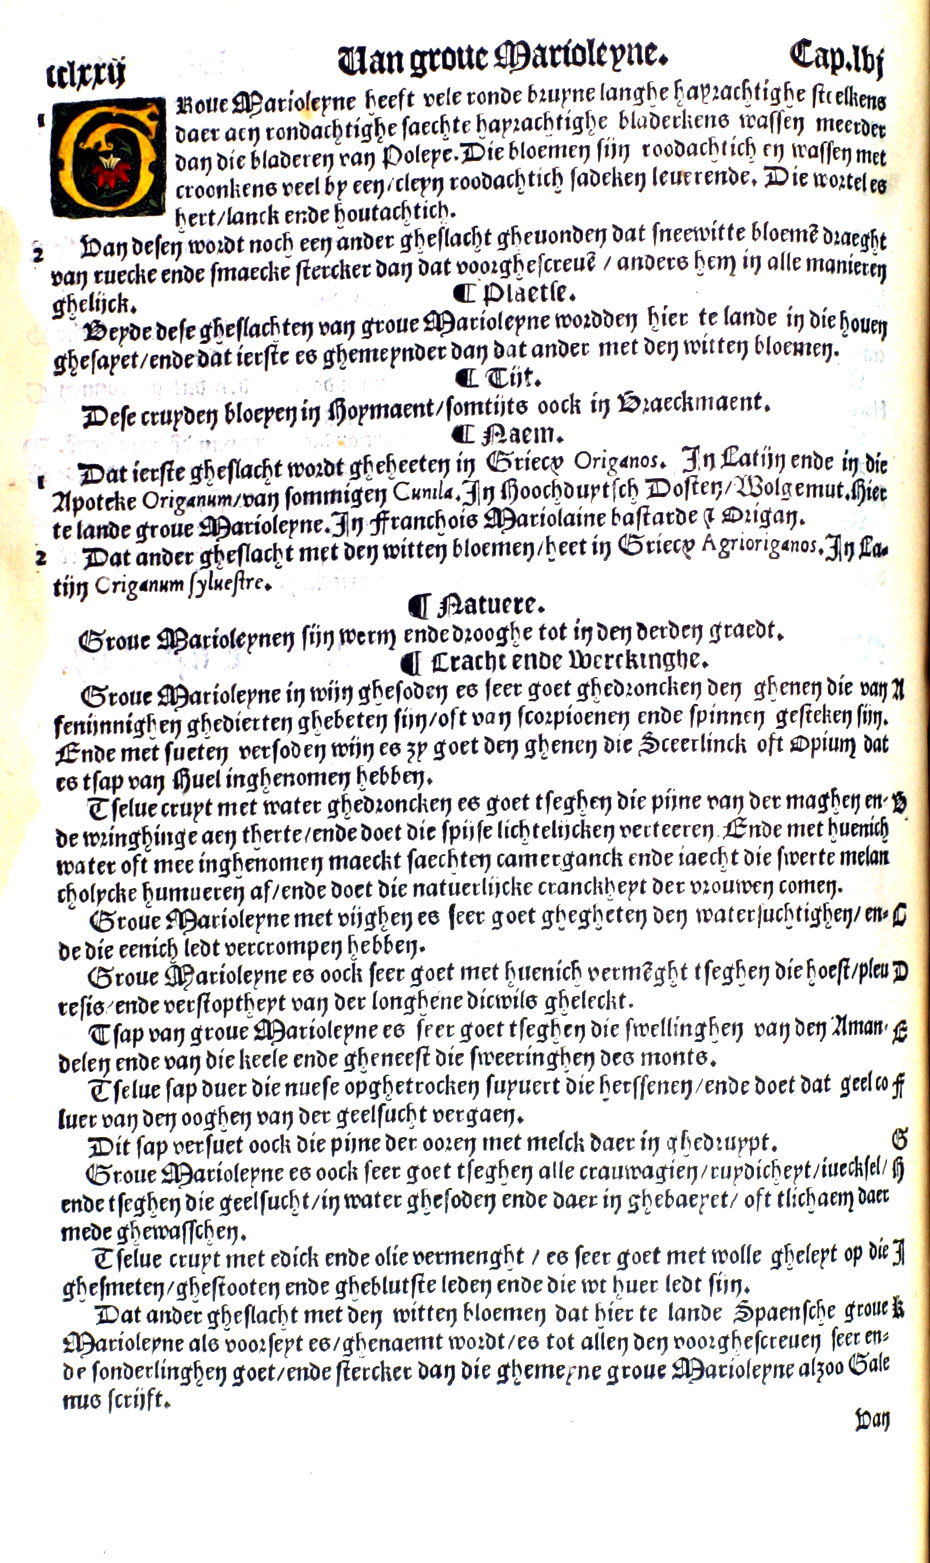 cclxxij Van groue Marioleyne. Cap.lvj
1 GRoue Marioleyne heeft vele ronde bruyne langhe hayrachtighe steelkens
daer aen rondachtighe saechte hayrachtighe bladerkens wassen meerder
dan die bladeren van Poleye. Die bloemen sijn roodachtich en wassen met
croonkens veel by een/cleyn roodachtich sadeken leuerende. Die wortel es
hert/lanck ende houtachtich.
2 Van desen wordt noch een ander gheslacht gheuonden dat sneewitte bloemẽ draeght
van ruecke ende smaecke stercker dan dat voorghescreuẽ / anders hem in alle manieren
ghelijck.
¶ Plaetse.
Beyde dese gheslachten van groue Marioleyne wordden hier te lande in die houen
ghesayet/ende dat ierste es ghemeynder dan dat ander met den witten bloemen.
¶ Tijt.
Dese cruyden bloeyen in Hoymaent/somtijts oock in Braeckmaent.
¶ Naem.
1 Dat ierste gheslacht wordt gheheeten in Griecx Origanos. In Latijn ende in die
Apoteke Origanum/van sommigen Cunila. In Hoochduytsch Dosten/Wolgemut. Hier
te lande groue Marioleyne. In Franchois Mariolaine bastarde & Origan.
2 Dat ander gheslacht met den witten bloemen/heet in Griecx Agrioriganos. In La-
tijn Origanum syluestre.
¶ Natuere.
Groue Marioleynen sijn werm ende drooghe tot in den derden graedt.
¶ Cracht ende Werckinghe.
Groue Marioleyne in wijn ghesoden es seer goet ghedroncken den ghenen die van A
fenijnnighen ghedierten ghebeten sijn/oft van scorpioenen ende spinnen gesteken sijn.
Ende met sueten versoden wijn es zy goet den ghenen die Sceerlinck oft Opium dat
es tsap van Huel inghenomen hebben.
Tselue cruyt met water ghedroncken es goet tseghen die pijne van der maghen en- B
de wringhinge aen therte/ende doet die spijse lichtelijcken verteeren. Ende met huenich
water oft mee inghenomen maeckt saechten camerganck ende iaecht die swerte melan
cholycke humueren af/ende doet die natuerlijcke cranckheyt der vrouwen comen.
Groue Marioleyne met vijghen es seer goet ghegheten den watersuchtighen/en- C
de die eenich ledt vercrompen hebben.
Groue Marioleyne es oock seer goet met huenich vermẽght tseghen die hoest/pleu D
resis/ende verstoptheyt van der longhene dicwils gheleckt.
Tsap van groue Marioleyne es seer goet tseghen die swellinghen van den Aman- E
delen ende van die keele ende gheneest die sweeringhen des monts.
Tselue sap duer die nuese opghetrocken suyuert die herssenen/ende doet dat geel co F
luer van den ooghen van der geelsucht vergaen.
Dit sap versuet oock die pijne der ooren met melck daer in ghedruypt. G
Groue Marioleyne es oock seer goet tseghen alle crauwagien/ruydicheyt/iuecksel/ H
ende tseghen die geelsucht/in water ghesoden ende daer in ghebaeyet/ oft tlichaem daer
mede ghewasschen.
Tselue cruyt met edick ende olie vermenght / es seer goet met wolle gheleyt op die I
ghesmeten/ghestooten ende gheblutste leden ende die wt huer ledt sijn.
Dat ander gheslacht met den witten bloemen dat hier te lande Spaensche groue K
Marioleyne als voorseyt es/ghenaemt wordt/es tot allen den voorghescreuen seer en-
de sonderlinghen goet/ende stercker dan die ghemeyne groue Marioleyne alzoo Gale
nus scrijft.
Van